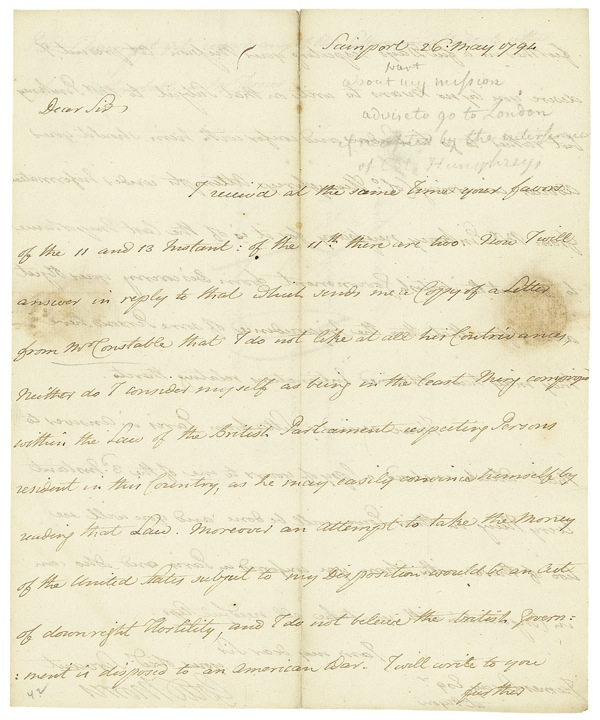 Sainport 26: May 1794
part
about my mission
advise to go to London
by the interference
of Humphreys
Dear Sir,
I receiv'd at the same Time your favors
of the 11 and 13 Instant: of the 11th. there are two. Now I will
answer in reply to that which sends me a Copy of a Letter
from Mr. Constable that I do not like at all his Contrivances,
Neither do I consider myself as being in the least Thing
within the Law of the British Parliament respecting Persons
resident in this Country, as he may easily convince himself by
reading that Law. Moreover an attempt to take the Money
of the United States subject to my Disposition would be an Act
of downright Hostility, and I do not believe the british Govern:
:ment is disposed to an American War. I will write to you
further
42